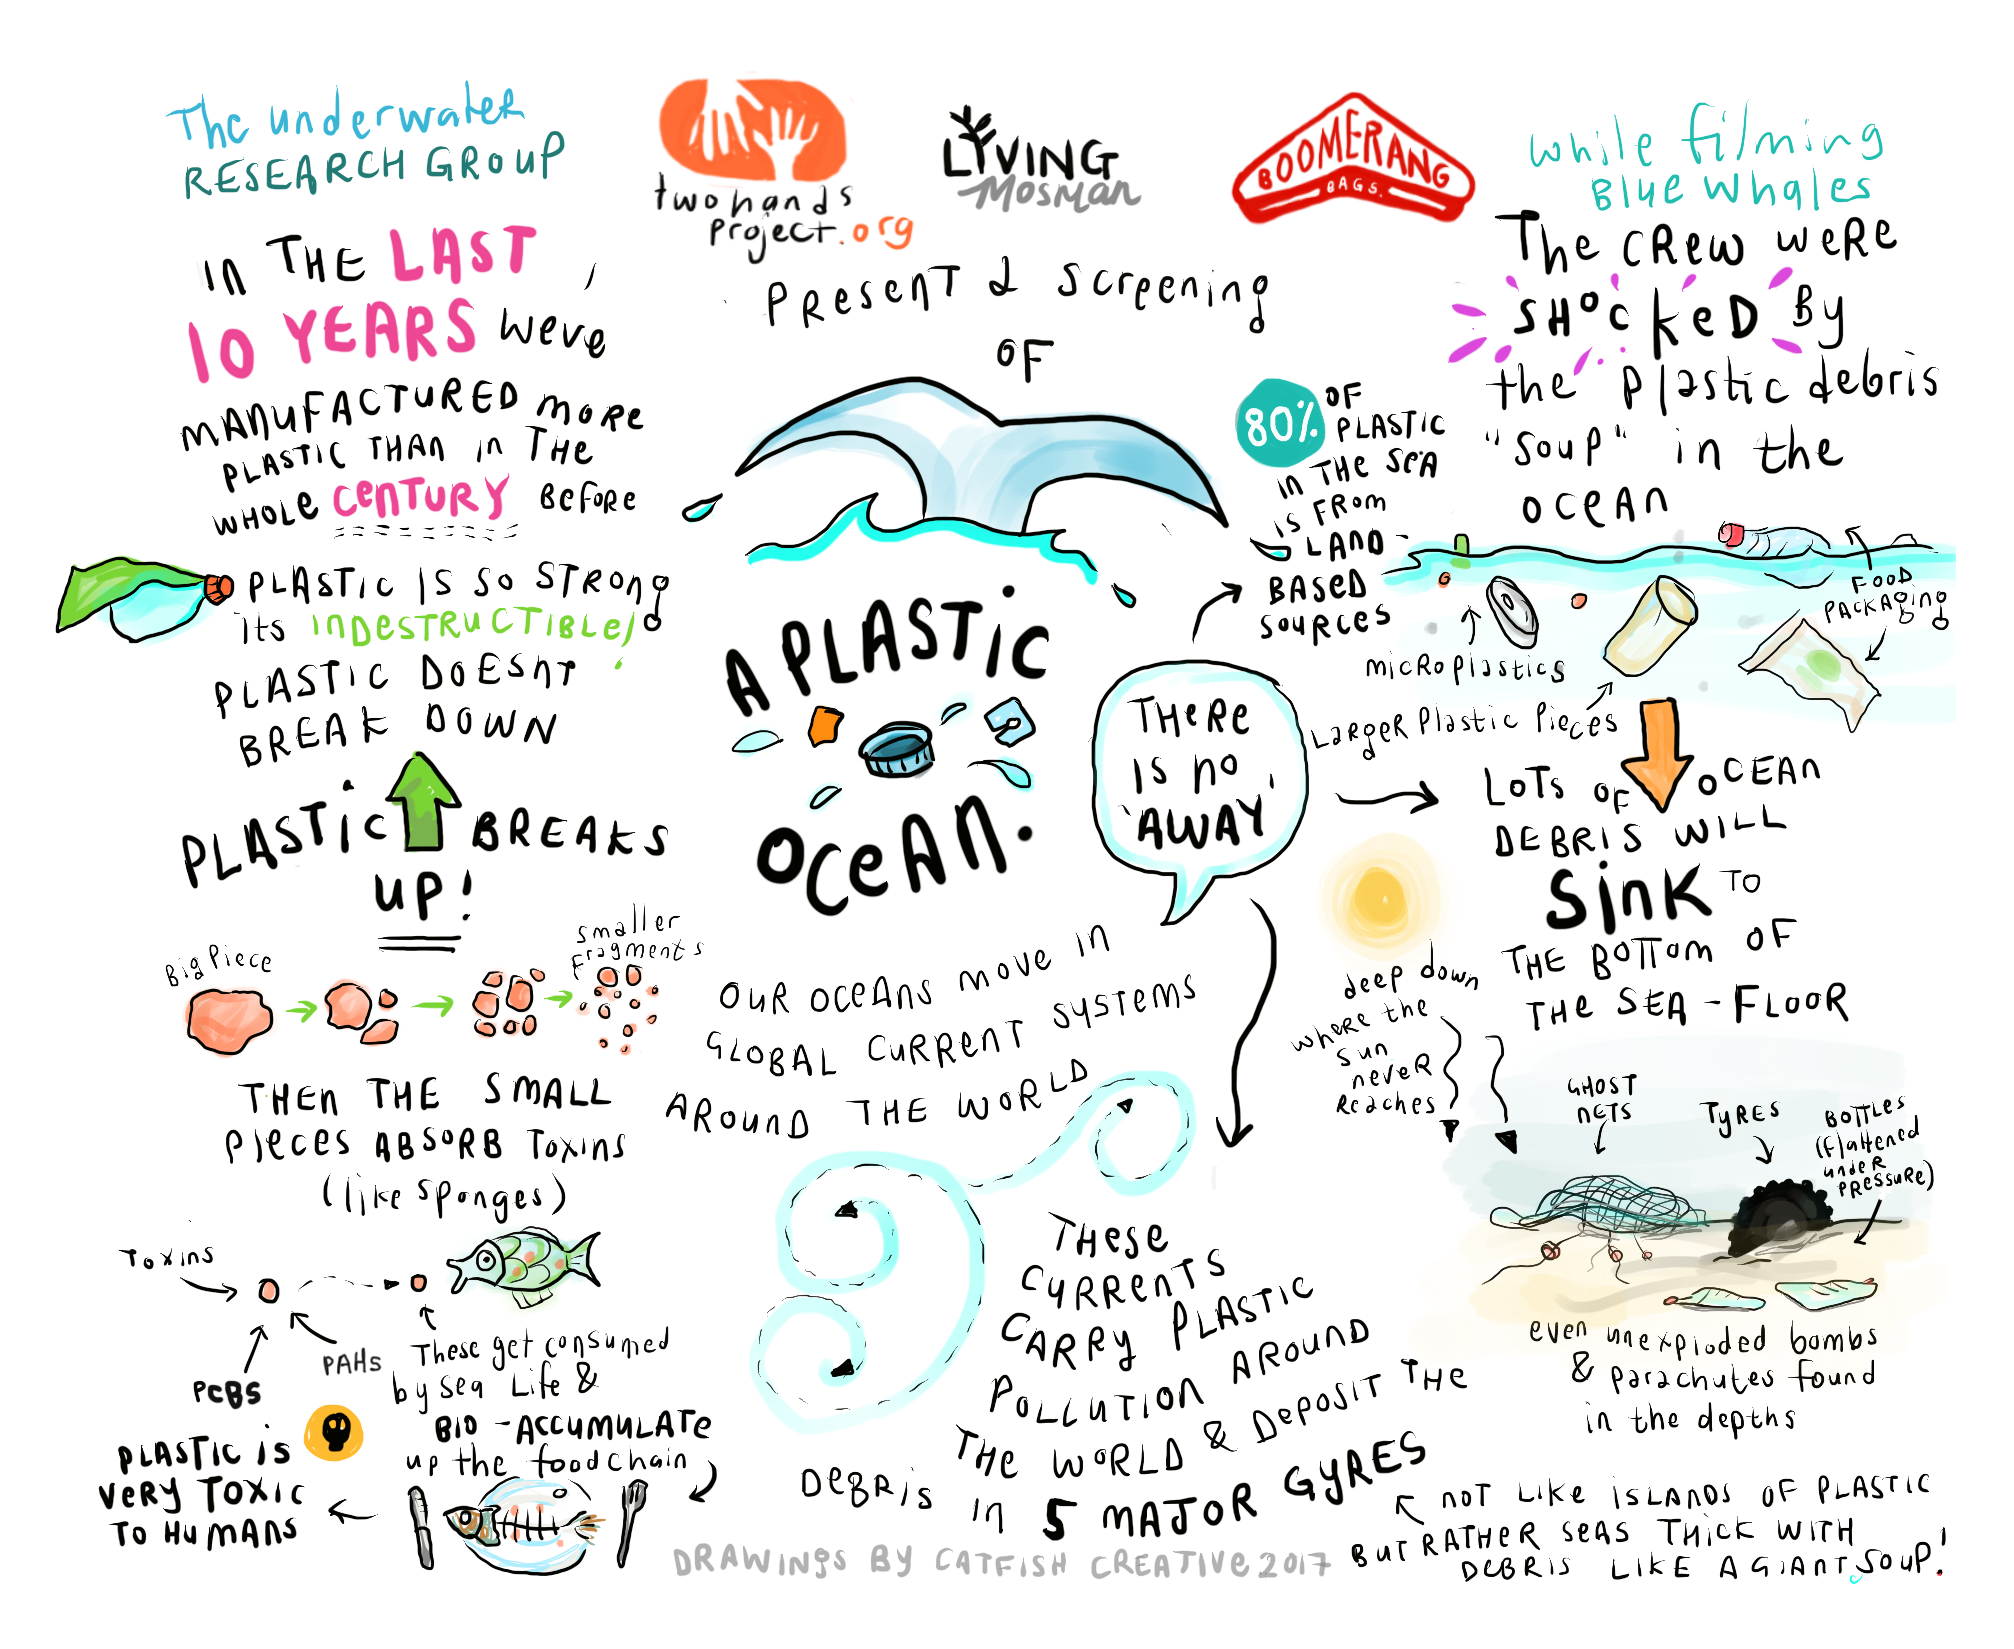 The underwater
RESEARCH GROUP
two hands
project.org
LIVING
Mosman
BOOMERANG
BAGS.
Present a screening
OF
A PLASTIC
OCEAN.
IN THE LAST
10 YEARS we've
MANUFACTURED more
PLASTIC THAN in THE
WHOLE CENTURY BEFORE
PLASTIC IS SO STRONG
its INDESTRUCTIBLE!
PLASTIC DOESNT
BREAK DOWN
PLASTIC BREAKS
UP!
Big Piece
smaller
fragments
THEN THE SMALL
PIECES ABSORB TOXINS
(like sponges)
Toxins
PCBS
PAHs
These get consumed
by sea Life &
BIO-ACCUMULATE
up the foodchain
PLASTIC is
VERY TOXIC
TO HUMANS
OUR OCEANS MOVE IN
GLOBAL CURRENT SYSTEMS
AROUND THE WORLD
THESE
CURRENTS
CARRY PLASTIC
POLLUTION AROUND
THE WORLD & DEPOSIT THE
DEBRIS in 5 MAJOR GYRES
THERE
IS NO
'AWAY'
80% OF
PLASTIC
IN THE SEA
IS FROM
LAND-
BASED
SOURCES
while filming
Blue Whales
The CREW WERE
SHOCKED By
the plastic debris
"SOUP" in the
OCEAN
FOOD
PACKAGING
microplastics
LARGER Plastic Pieces
LOTS OF OCEAN
DEBRIS WILL
SINK TO
THE BOTTOM OF
THE SEA-FLOOR
deep down
where the
sun
never
Reaches
GHOST
NETS
TYRES
BOTTLES
(flattened
under
PRESSURE)
even unexploded bombs
& parachutes found
in the depths
NOT LIKE ISLANDS OF PLASTIC
BUT RATHER SEAS THICK WITH
DEBRIS LIKE A GIANT SOUP!
DRAWINGS BY CATFISH CREATIVE 2017